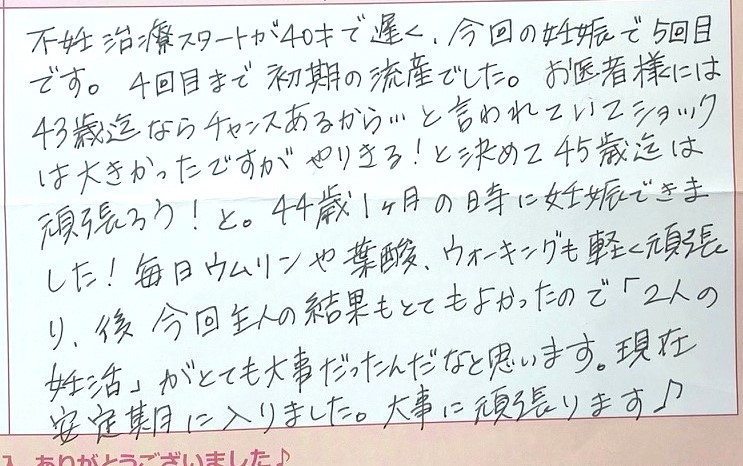 不妊治療スタートが40才で遅く、今回の妊娠で5回目
です。4回目まで初期の流産でした。お医者様には
43歳迄ならチャンスあるから…と言われていてショック
は大きかったですがやりきる!と決めて45歳迄は
頑張ろう!と。44歳1ヶ月の時に妊娠できま
した!毎日ウムリンや葉酸、ウォーキングも軽く頑張
り、後今回主人の結果もとてもよかったので「2人の
妊活」がとても大事だったんだなと思います。現在
安定期に入りました。大事に頑張ります♪
ありがとうございました♪